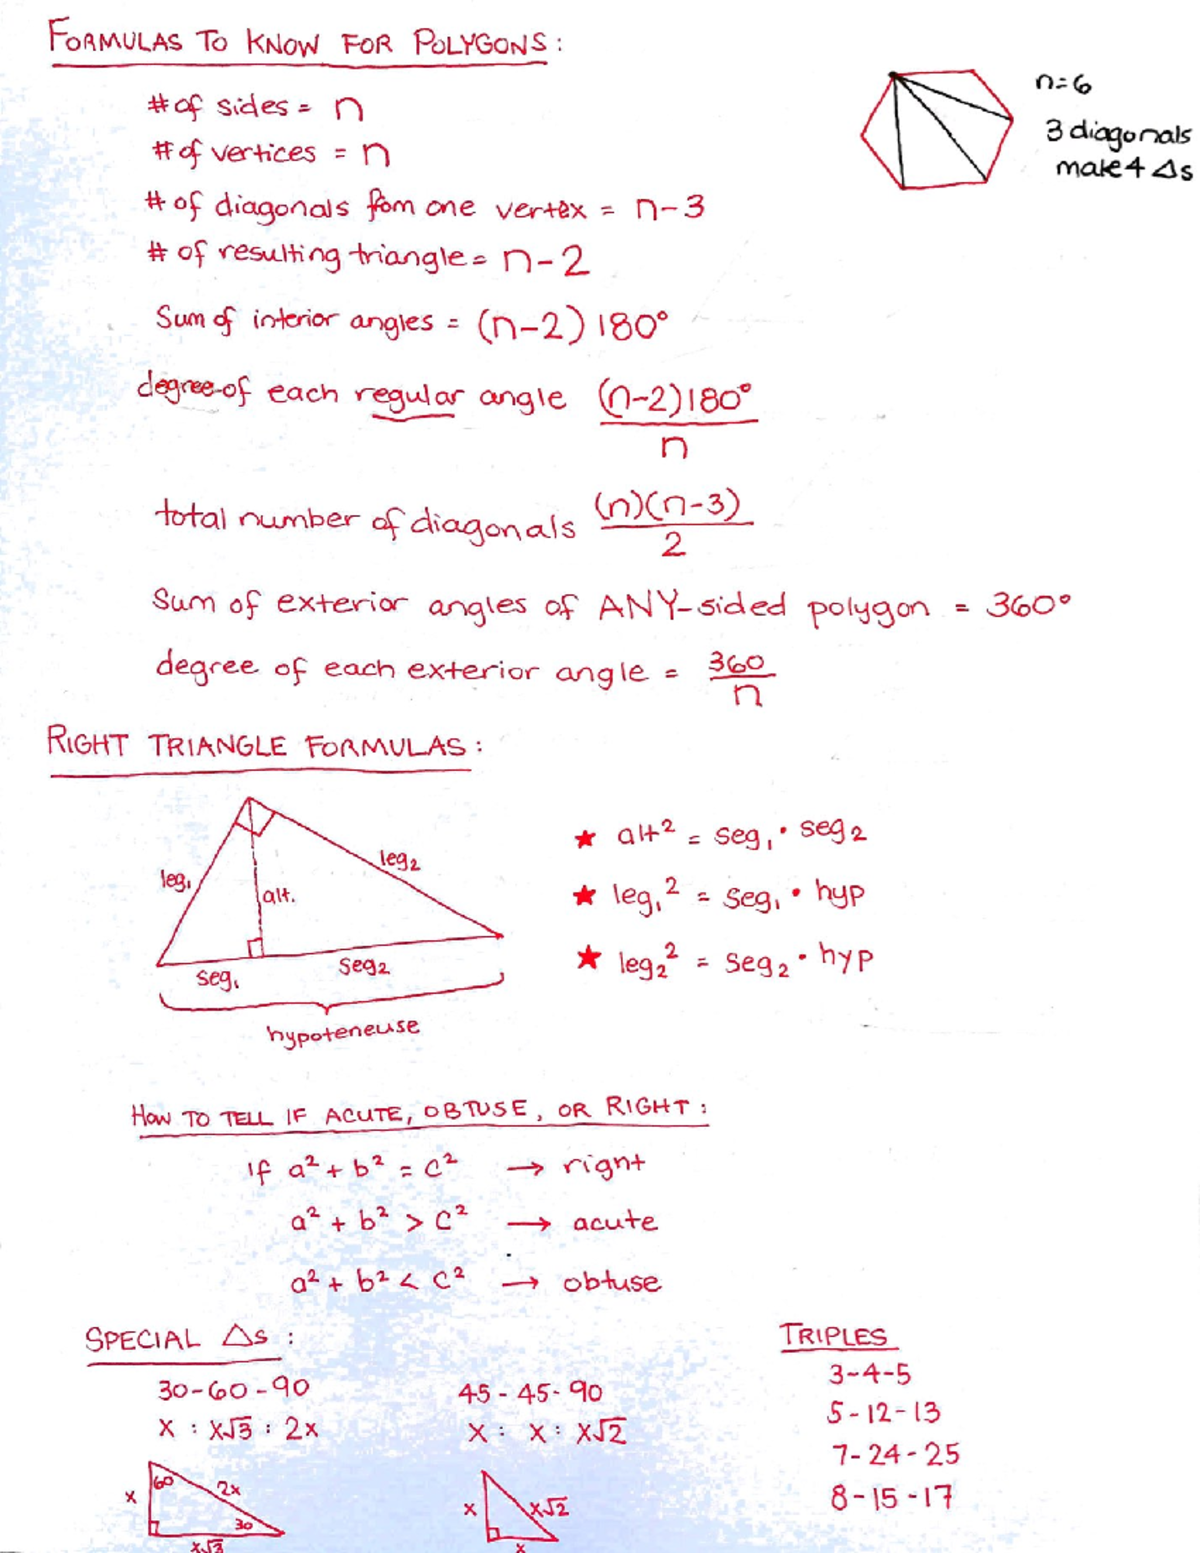 FORMULAS TO KNOW FOR POLYGONS:
# of sides = n
# of vertices = n
# of diagonals from one vertex = n-3
# of resulting triangle = n-2
Sum of interior angles = (n-2) 180°
degree of each regular angle (n-2)180°
n
total number of diagonals (n)(n-3)
2
Sum of exterior angles of ANY-sided polygon = 360°
degree of each exterior angle = 360
n
n=6
3 diagonals
make 4 △s
RIGHT TRIANGLE FORMULAS:
leg₁
leg₂
alt.
seg₁
seg₂
hypoteneuse
★ alt² = seg₁ • seg₂
★ leg₁² = seg₁ • hyp
★ leg₂² = seg₂ • hyp
HOW TO TELL IF ACUTE, OBTUSE, OR RIGHT:
If a² + b² = c² → right
a² + b² > c² → acute
a² + b² < c² → obtuse
SPECIAL △s :
30-60-90
x : x√3 : 2x
60
2x
x
30
x√3
45-45-90
x : x : x√2
x
x√2
x
TRIPLES
3-4-5
5-12-13
7-24-25
8-15-17